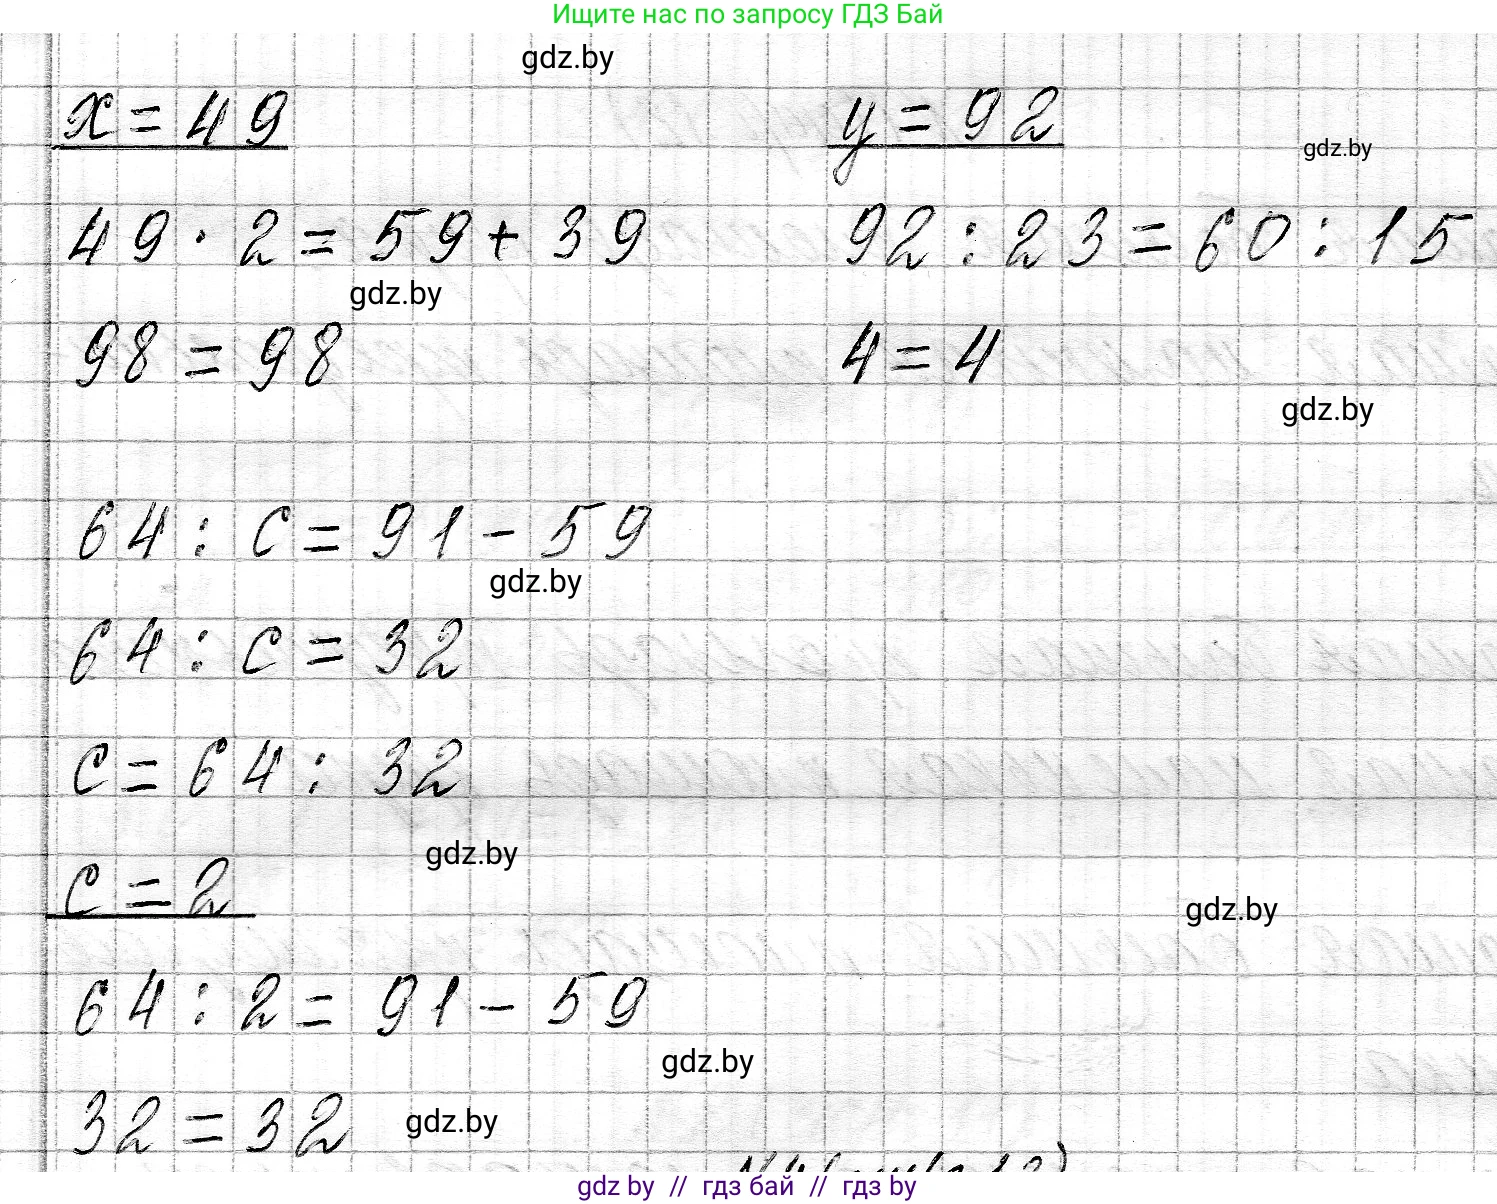 Ищите нас по запросу ГДЗ Бай
gdz.by
x = 49
y = 92
gdz.by
49 · 2 = 59 + 39
92 : 23 = 60 : 15
gdz.by
98 = 98
4 = 4
gdz.by
64 : c = 91 - 59
gdz.by
64 : c = 32
c = 64 : 32
gdz.by
c = 2
gdz.by
64 : 2 = 91 - 59
gdz.by
32 = 32
gdz.by
gdz by // гдз бай // гдз by